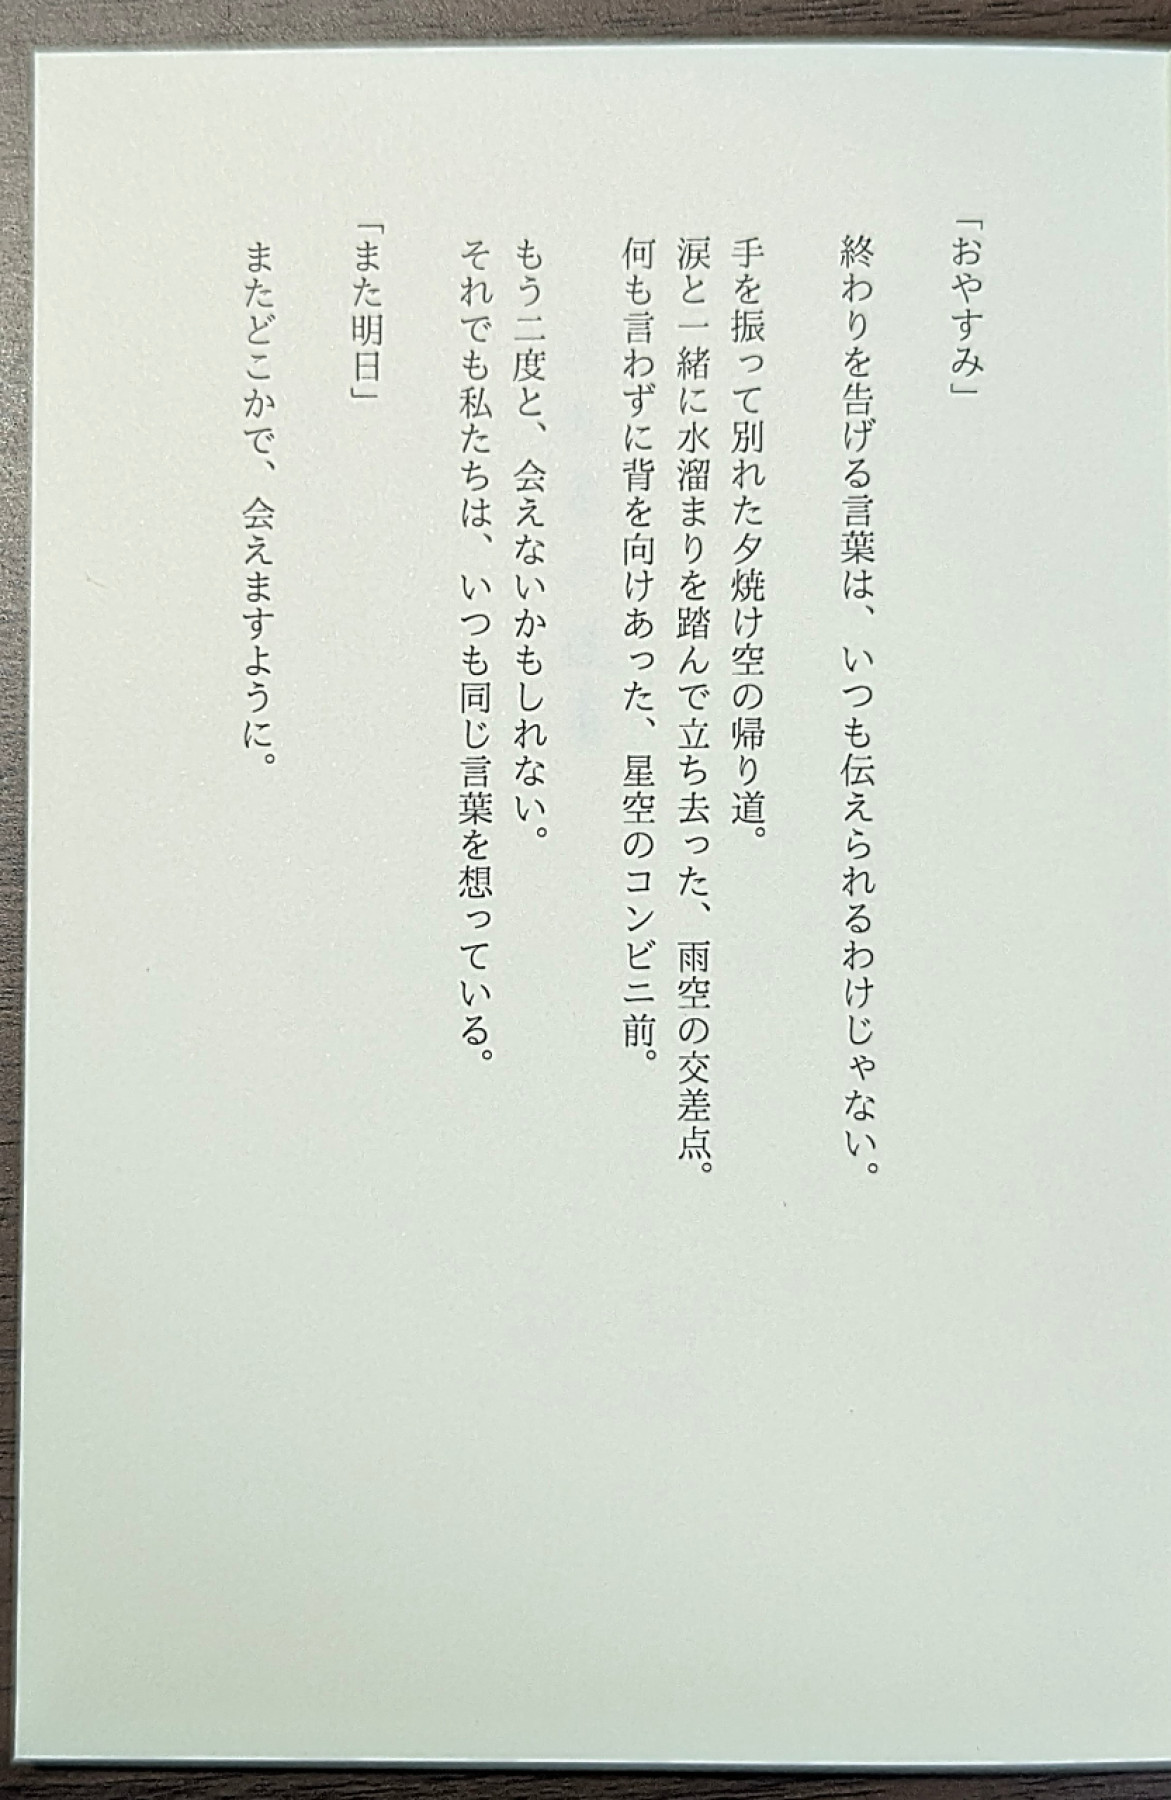 「おやすみ」
終わりを告げる言葉は、いつも伝えられるわけじゃない。
手を振って別れた夕焼け空の帰り道。
涙と一緒に水溜まりを踏んで立ち去った、雨空の交差点。
何も言わずに背を向けあった、星空のコンビニ前。
もう二度と、会えないかもしれない。
それでも私たちは、いつも同じ言葉を想っている。
「また明日」
またどこかで、会えますように。